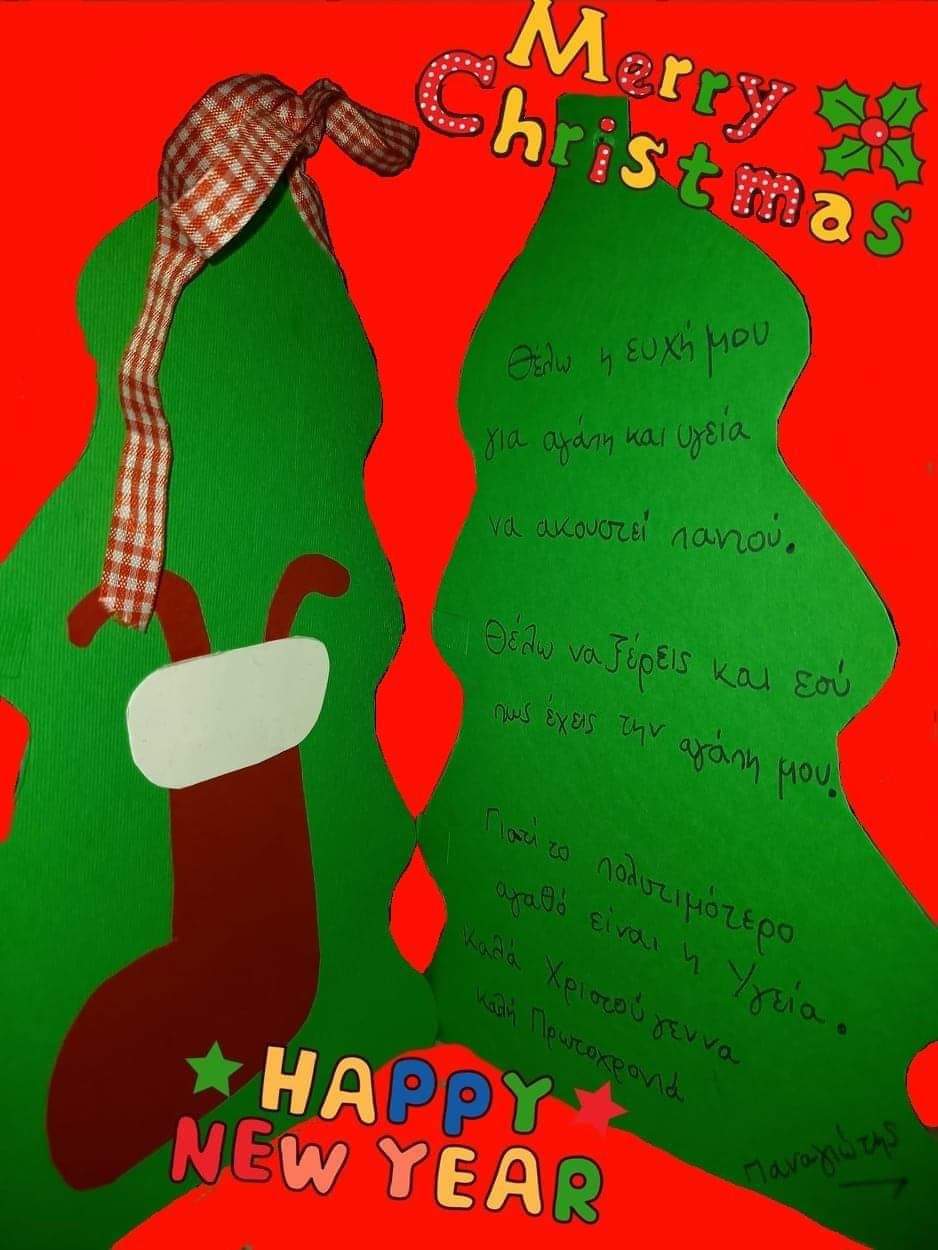 Merry
Christmas
Θέλω η ευχή μου
για αγάπη και υγεία
να ακουστεί παντού.
Θέλω να ξέρεις και εσύ
πως έχεις την αγάπη μου.
Γιατί το πολυτιμότερο
αγαθό είναι η Υγεία.
Καλά Χριστούγεννα
Καλή Πρωτοχρονιά
Παναγιώτης
HAPPY
NEW YEAR